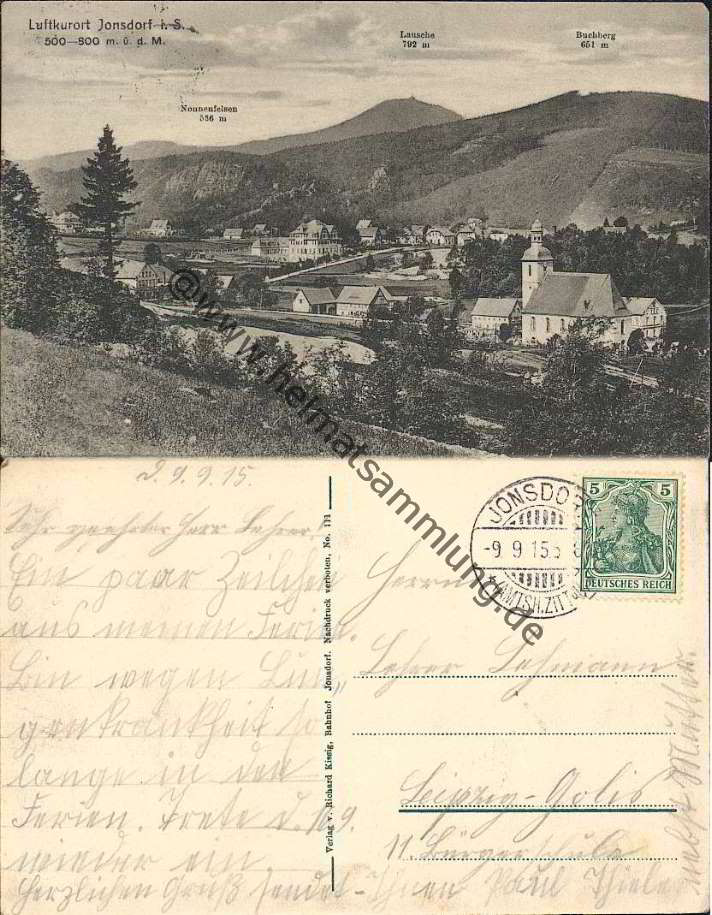 Luftkurort Jonsdorf i. S.
500—800 m. ü. d. M.
Lausche
792 m
Buchberg
651 m
Nonnenfelsen
536 m
@www.heimatsammlung.de
D. 9. 9. 15.
Sehr geehrter Herr Lehrer!
Ein paar Zeilchen
aus meinen Ferien.
Bin wegen Lun„
genkrankheit so
lange in den
Ferien. Trete d. 16. 9.
wieder ein
Herzlichen Gruß sendet Ihnen Paul Thieler
nebst Mutter
Verlag v. Richard Kissig, Bahnhof Jonsdorf. Nachdruck verboten, No. 111
JONSDORF
-9 9 15.5
(AMTSH. ZITTAU)
5 5
DEUTSCHES REICH
Herrn
Lehrer Lehmann
Leipzig-Golis
11. Bürgerschule